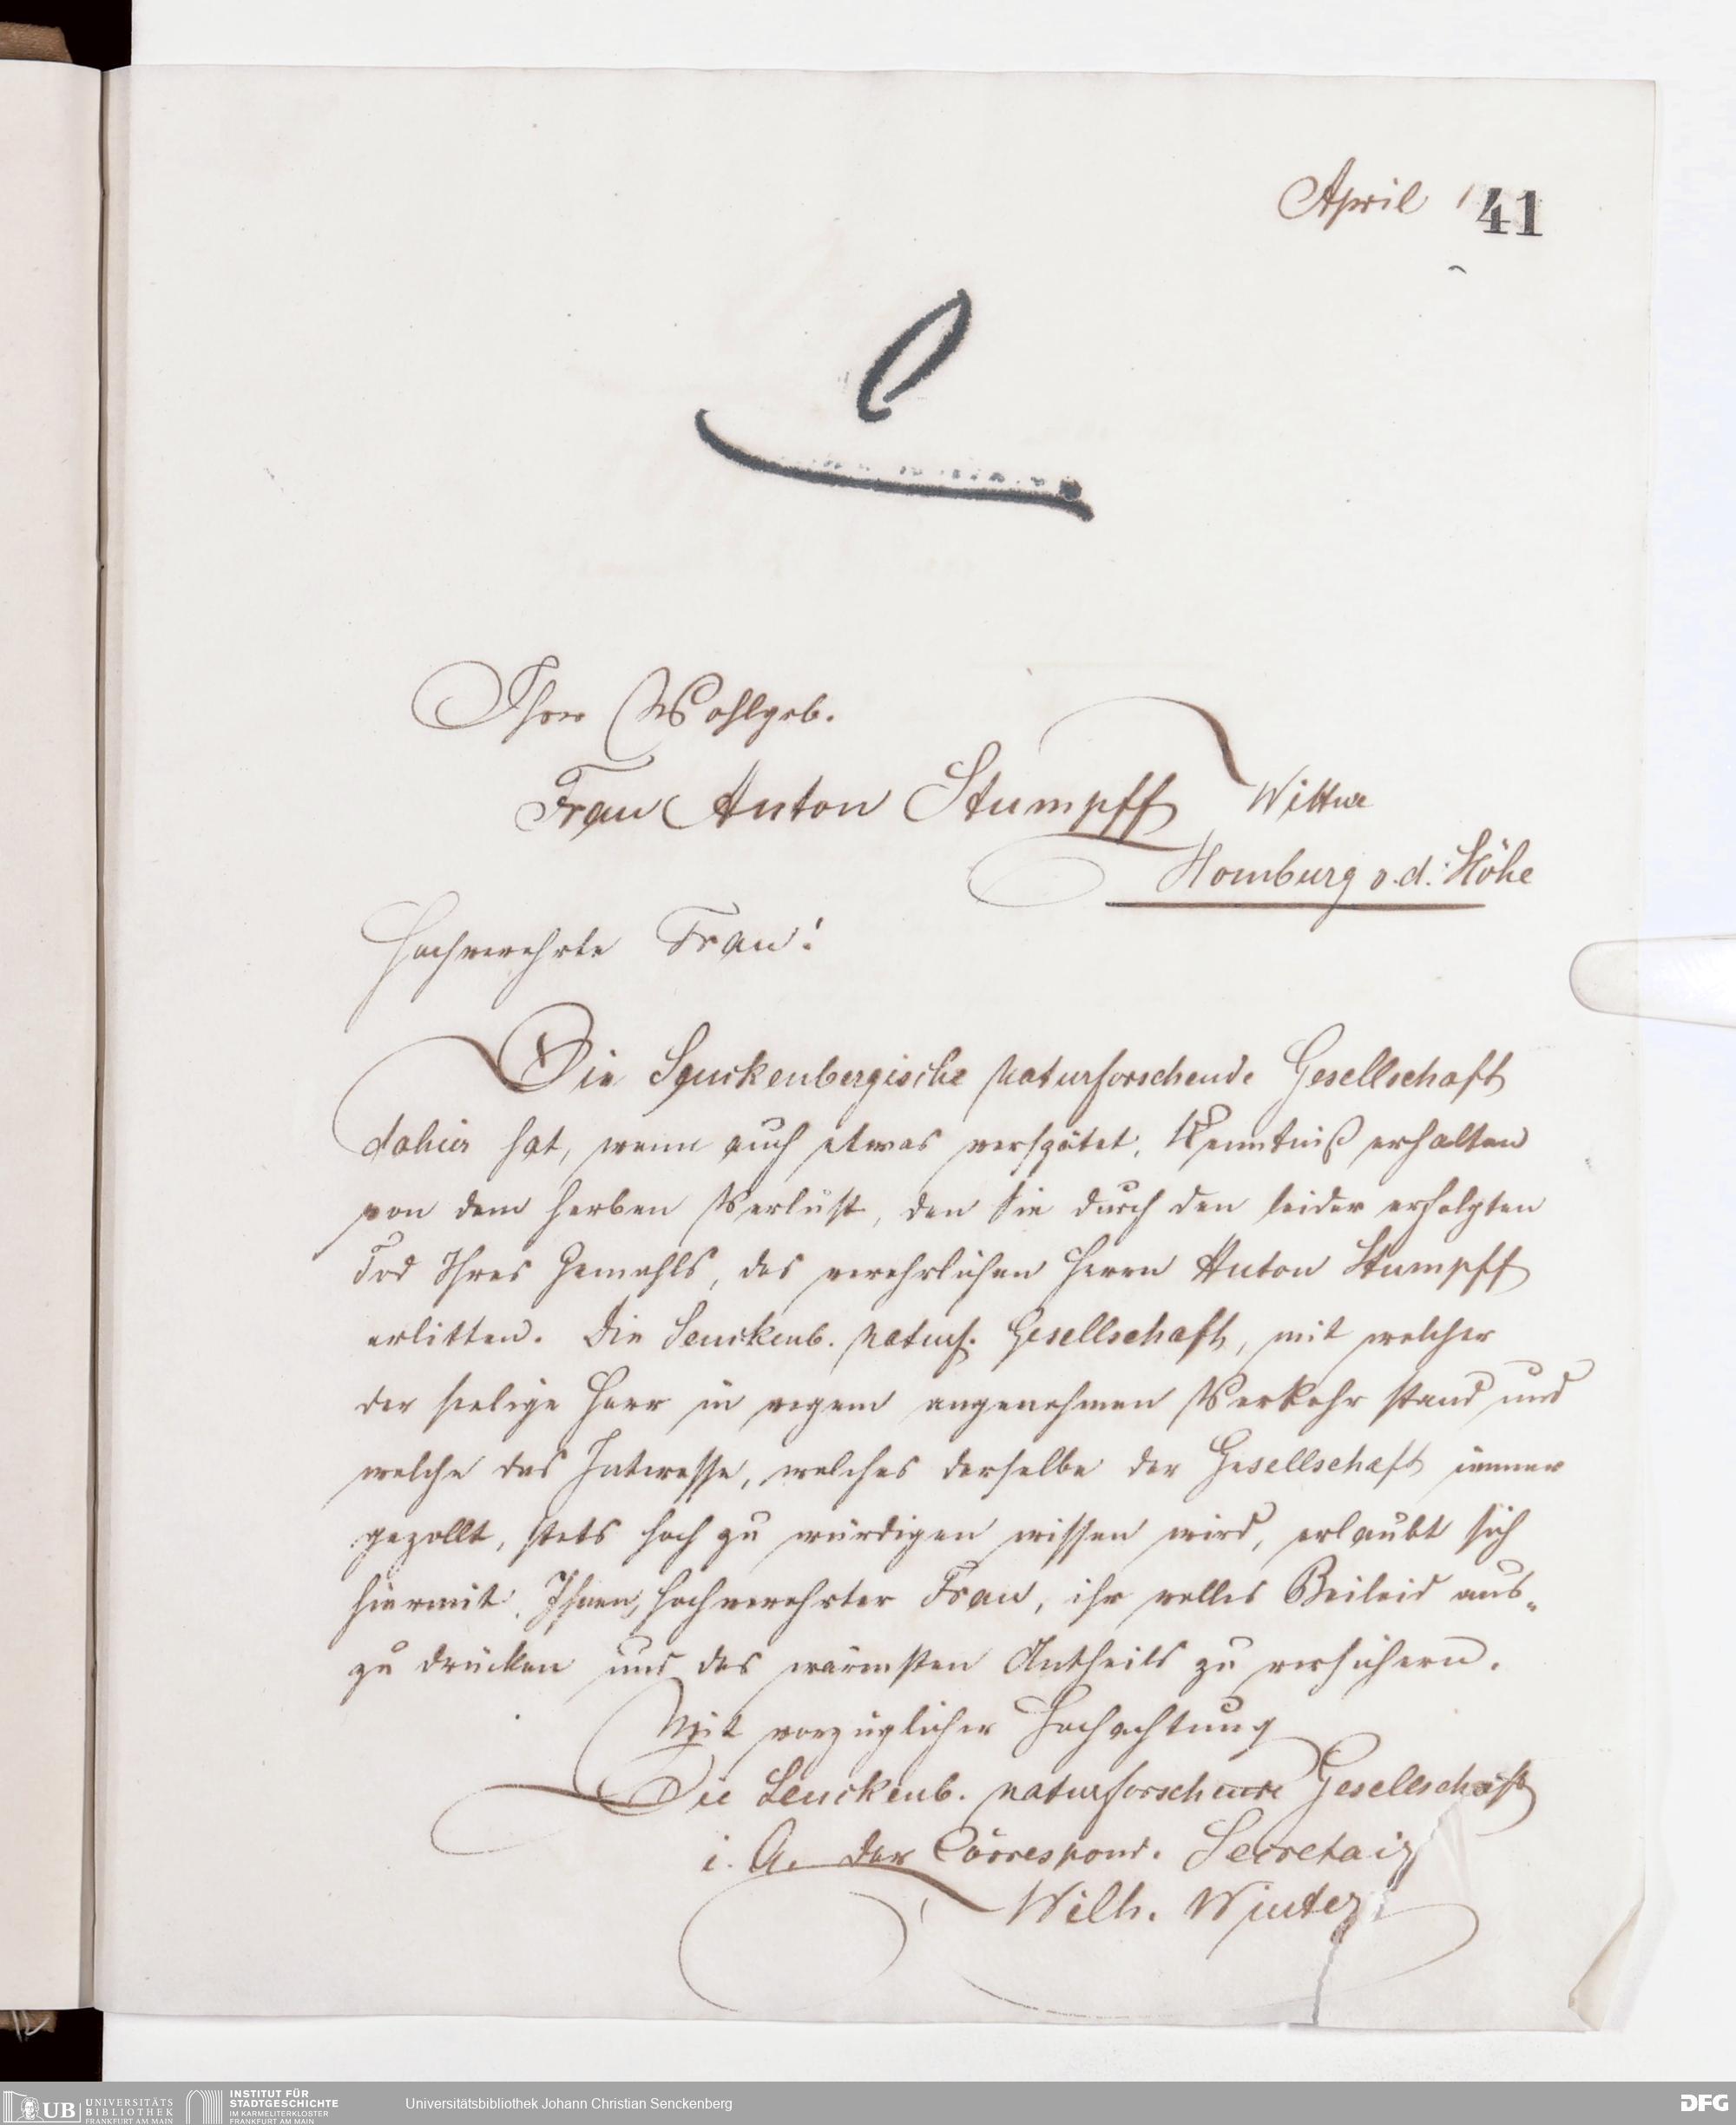 April 1
41
Ihro Wohlgeb.
Frau Anton Stumpff Wittwe
Homburg v. d. Höhe
Hochverehrte Frau!
Die Senckenbergische naturforschende Gesellschaft
dahier hat, wenn auch etwas verspätet, Kenntniß erhalten
von dem herben Verlust, den Sie durch den leider erfolgten
Tod Ihres Gemahls, des verehrlichen Herrn Anton Stumpff
erlitten. Die Senckenb. naturf. Gesellschaft, mit welcher
der seelige Herr in regem angenehmen Verkehr stand und
welche das Interesse, welches derselbe der Gesellschaft immer
gezollt, stets hoch zu würdigen wissen wird, erlaubt sich
hiermit, Ihnen, hochverehrter Frau, ihr volles Beileid aus-
zu drücken und des wärmsten Antheils zu versichern.
Mit vorzüglicher Hochachtung
Die Senckenb. naturforschende Gesellschaft
i. A. der Correspond. Secretair
Wilh. Winter
UB UNIVERSITÄTS BIBLIOTHEK FRANKFURT AM MAIN
INSTITUT FÜR STADTGESCHICHTE IM KARMELITERKLOSTER FRANKFURT AM MAIN
Universitätsbibliothek Johann Christian Senckenberg
DFG